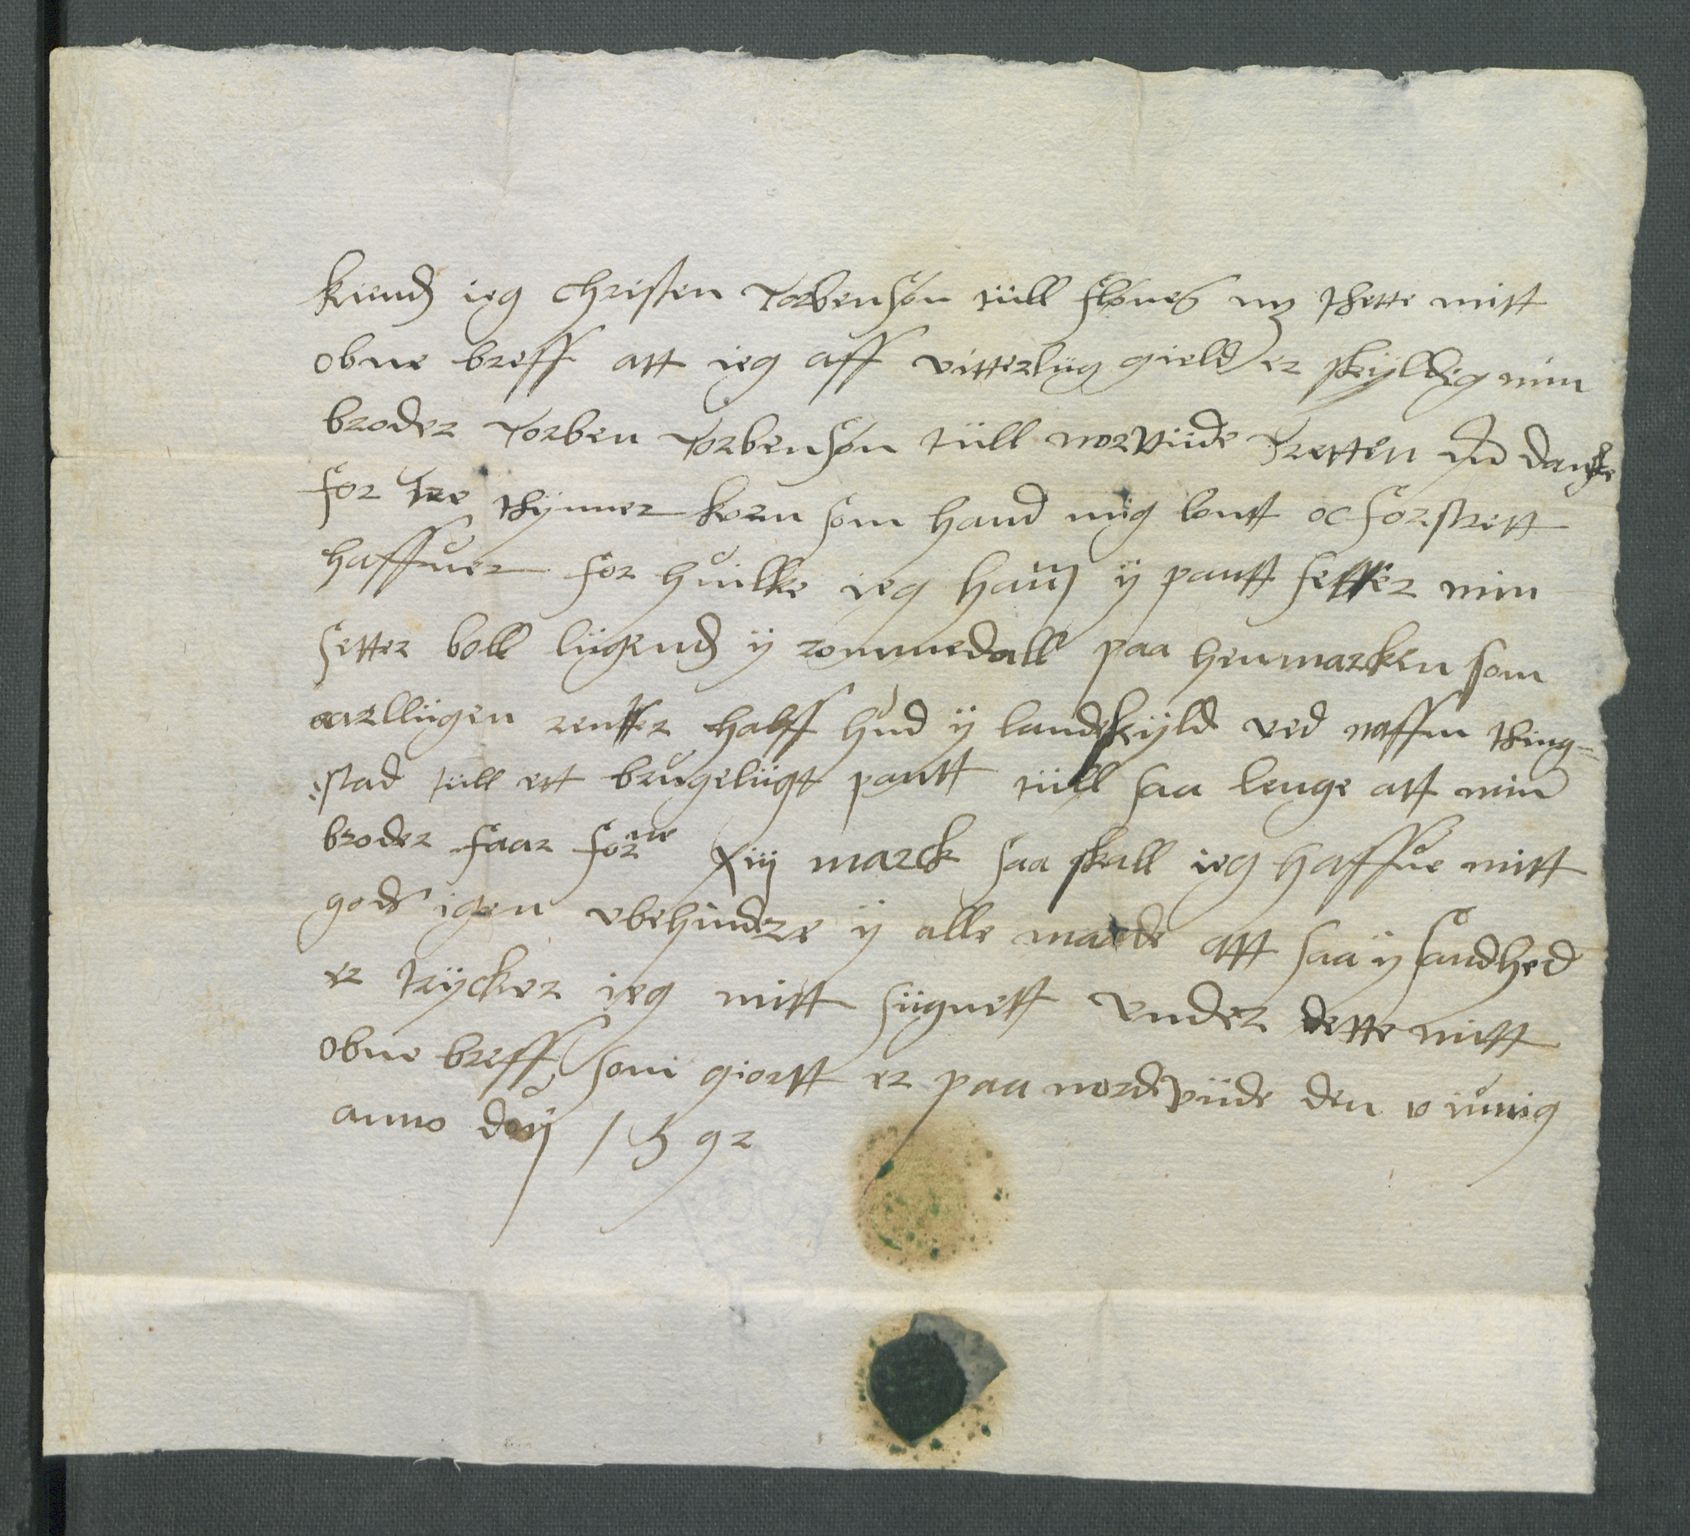 Kiendis ieg Christen Torbensøn tiill flønes mz thette mitt
obne breff att ieg aff vitterliig gield er skyldig min
broder Torben Torbensøn tiill norviide Tretten danske
for tre thynner korn som hand miig lontt oc forstrett
haffuer for huilke ieg hanῡ ÿ pantt setter min
setter boll liigendis ÿ rommedall paa henmarcken som
aarlliigen renther halff hud ÿ landskyld ved naffn thing=
stad tiill ett brugeliigt pantt tiill saa lenge att min
broder faar forne xiij marck saa skall ieg haffue mitt
gods igen vbehindre ÿ alle maade att saa ÿ sandhed
er trÿcker ieg mitt siignett vnder dette mitt
obne breff som giortt er paa nordviide den iunig
anno doij 1592